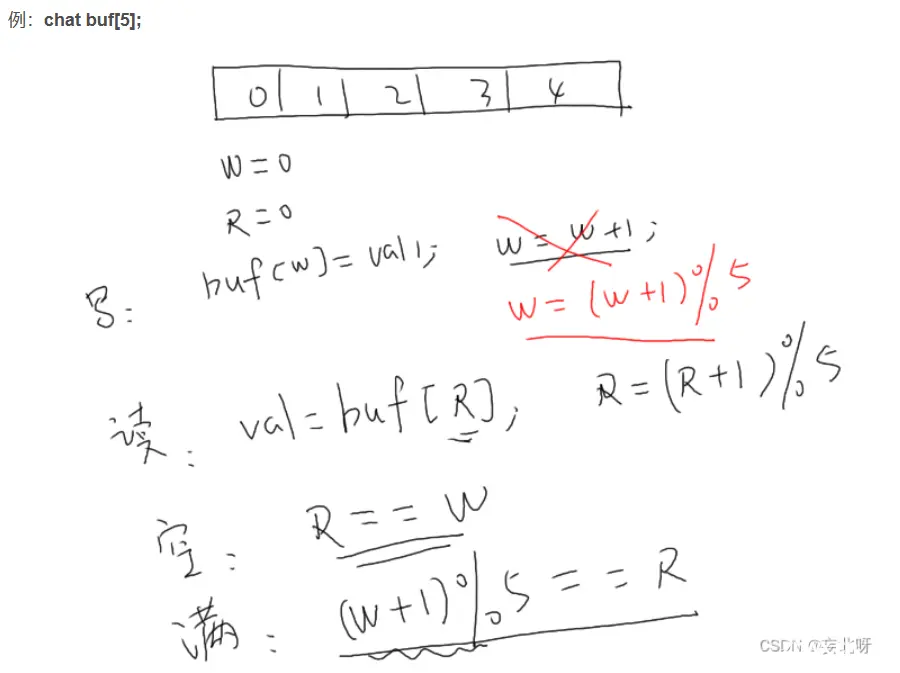 例：chat buf[5];
0 1 2 3 4
W=0
R=0
写： buf[w]=val1; w=w+1;
w=(w+1)%5
读： val=buf[R]; R=(R+1)%5
空： R==W
满： (w+1)%5==R
CSDN @妄北呀